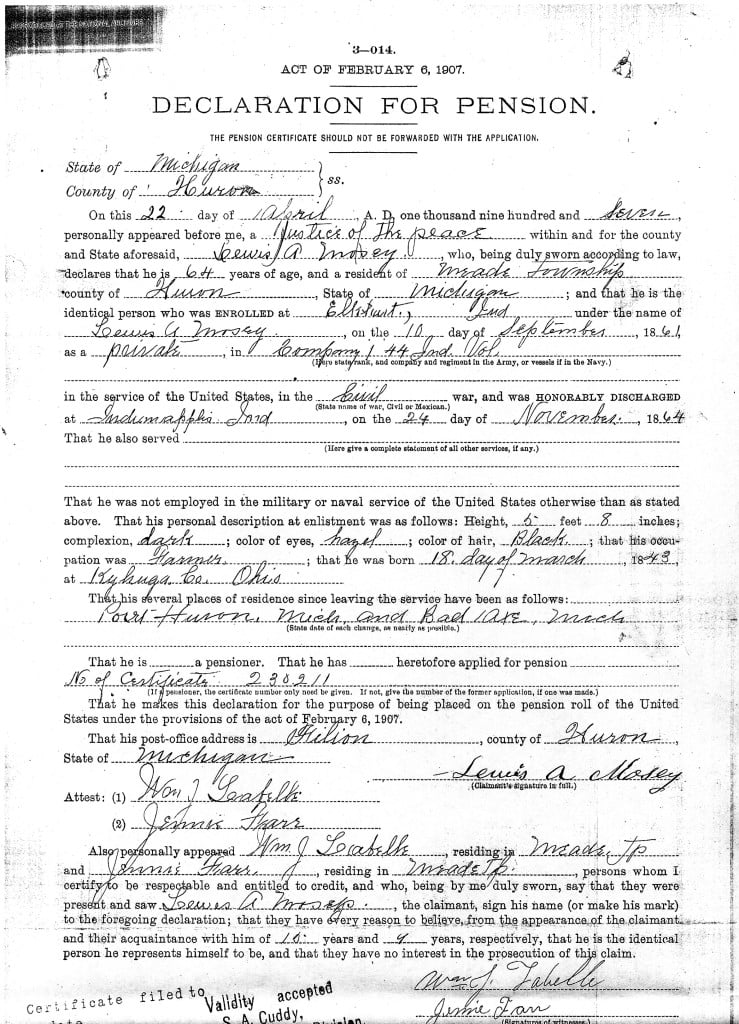 3—014.
ACT OF FEBRUARY 6, 1907.
DECLARATION FOR PENSION.
THE PENSION CERTIFICATE SHOULD NOT BE FORWARDED WITH THE APPLICATION.
State of Michigan
County of Huron } ss.
On this 22 day of April, A. D. one thousand nine hundred and Seven,
personally appeared before me, a Justice of the peace within and for the county
and State aforesaid, Lewis A Mosey, who, being duly sworn according to law,
declares that he is 64 years of age, and a resident of Meade Township
county of Huron, State of Michigan; and that he is the
identical person who was ENROLLED at Elkhart, Ind under the name of
Lewis A Mosey, on the 10 day of September, 1861,
as a private, in Company I 44 Ind. Vol.
(Here state rank, and company and regiment in the Army, or vessels if in the Navy.)
in the service of the United States, in the Civil war, and was HONORABLY DISCHARGED
(State name of war, Civil or Mexican.)
at Indianapplis Ind, on the 24 day of November, 1864
That he also served
(Here give a complete statement of all other services, if any.)
That he was not employed in the military or naval service of the United States otherwise than as stated
above. That his personal description at enlistment was as follows: Height, 5 feet 8 inches;
complexion, dark; color of eyes, hazel; color of hair, Black; that his occu-
pation was Farmer; that he was born 18. day of March, 1843,
at Kyhuga Co. Ohio
That his several places of residence since leaving the service have been as follows:
Port Huron, Mich, and Bad Axe, Mich
(State date of each change, as nearly as possible.)
That he is a pensioner. That he has heretofore applied for pension
No of Certificate 230211
(If a pensioner, the certificate number only need be given. If not, give the number of the former application, if one was made.)
That he makes this declaration for the purpose of being placed on the pension roll of the United
States under the provisions of the act of February 6, 1907.
That his post-office address is Filion, county of Huron,
State of Michigan
Lewis A Mosey
(Claimant's signature in full.)
Attest: (1) Wm J Labelle
(2) Jennie Farr
Also personally appeared Wm J Labelle, residing in Meade Tp
and Jennie Farr, residing in Meade Tp., persons whom I
certify to be respectable and entitled to credit, and who, being by me duly sworn, say that they were
present and saw Lewis A Mosey, the claimant, sign his name (or make his mark)
to the foregoing declaration; that they have every reason to believe, from the appearance of the claimant
and their acquaintance with him of 10 years and 9 years, respectively, that he is the identical
person he represents himself to be, and that they have no interest in the prosecution of this claim.
Wm J. Labelle
Jennie Farr
(Signatures of witnesses.)
Certificate filed to
Validity accepted
S. A. Cuddy,